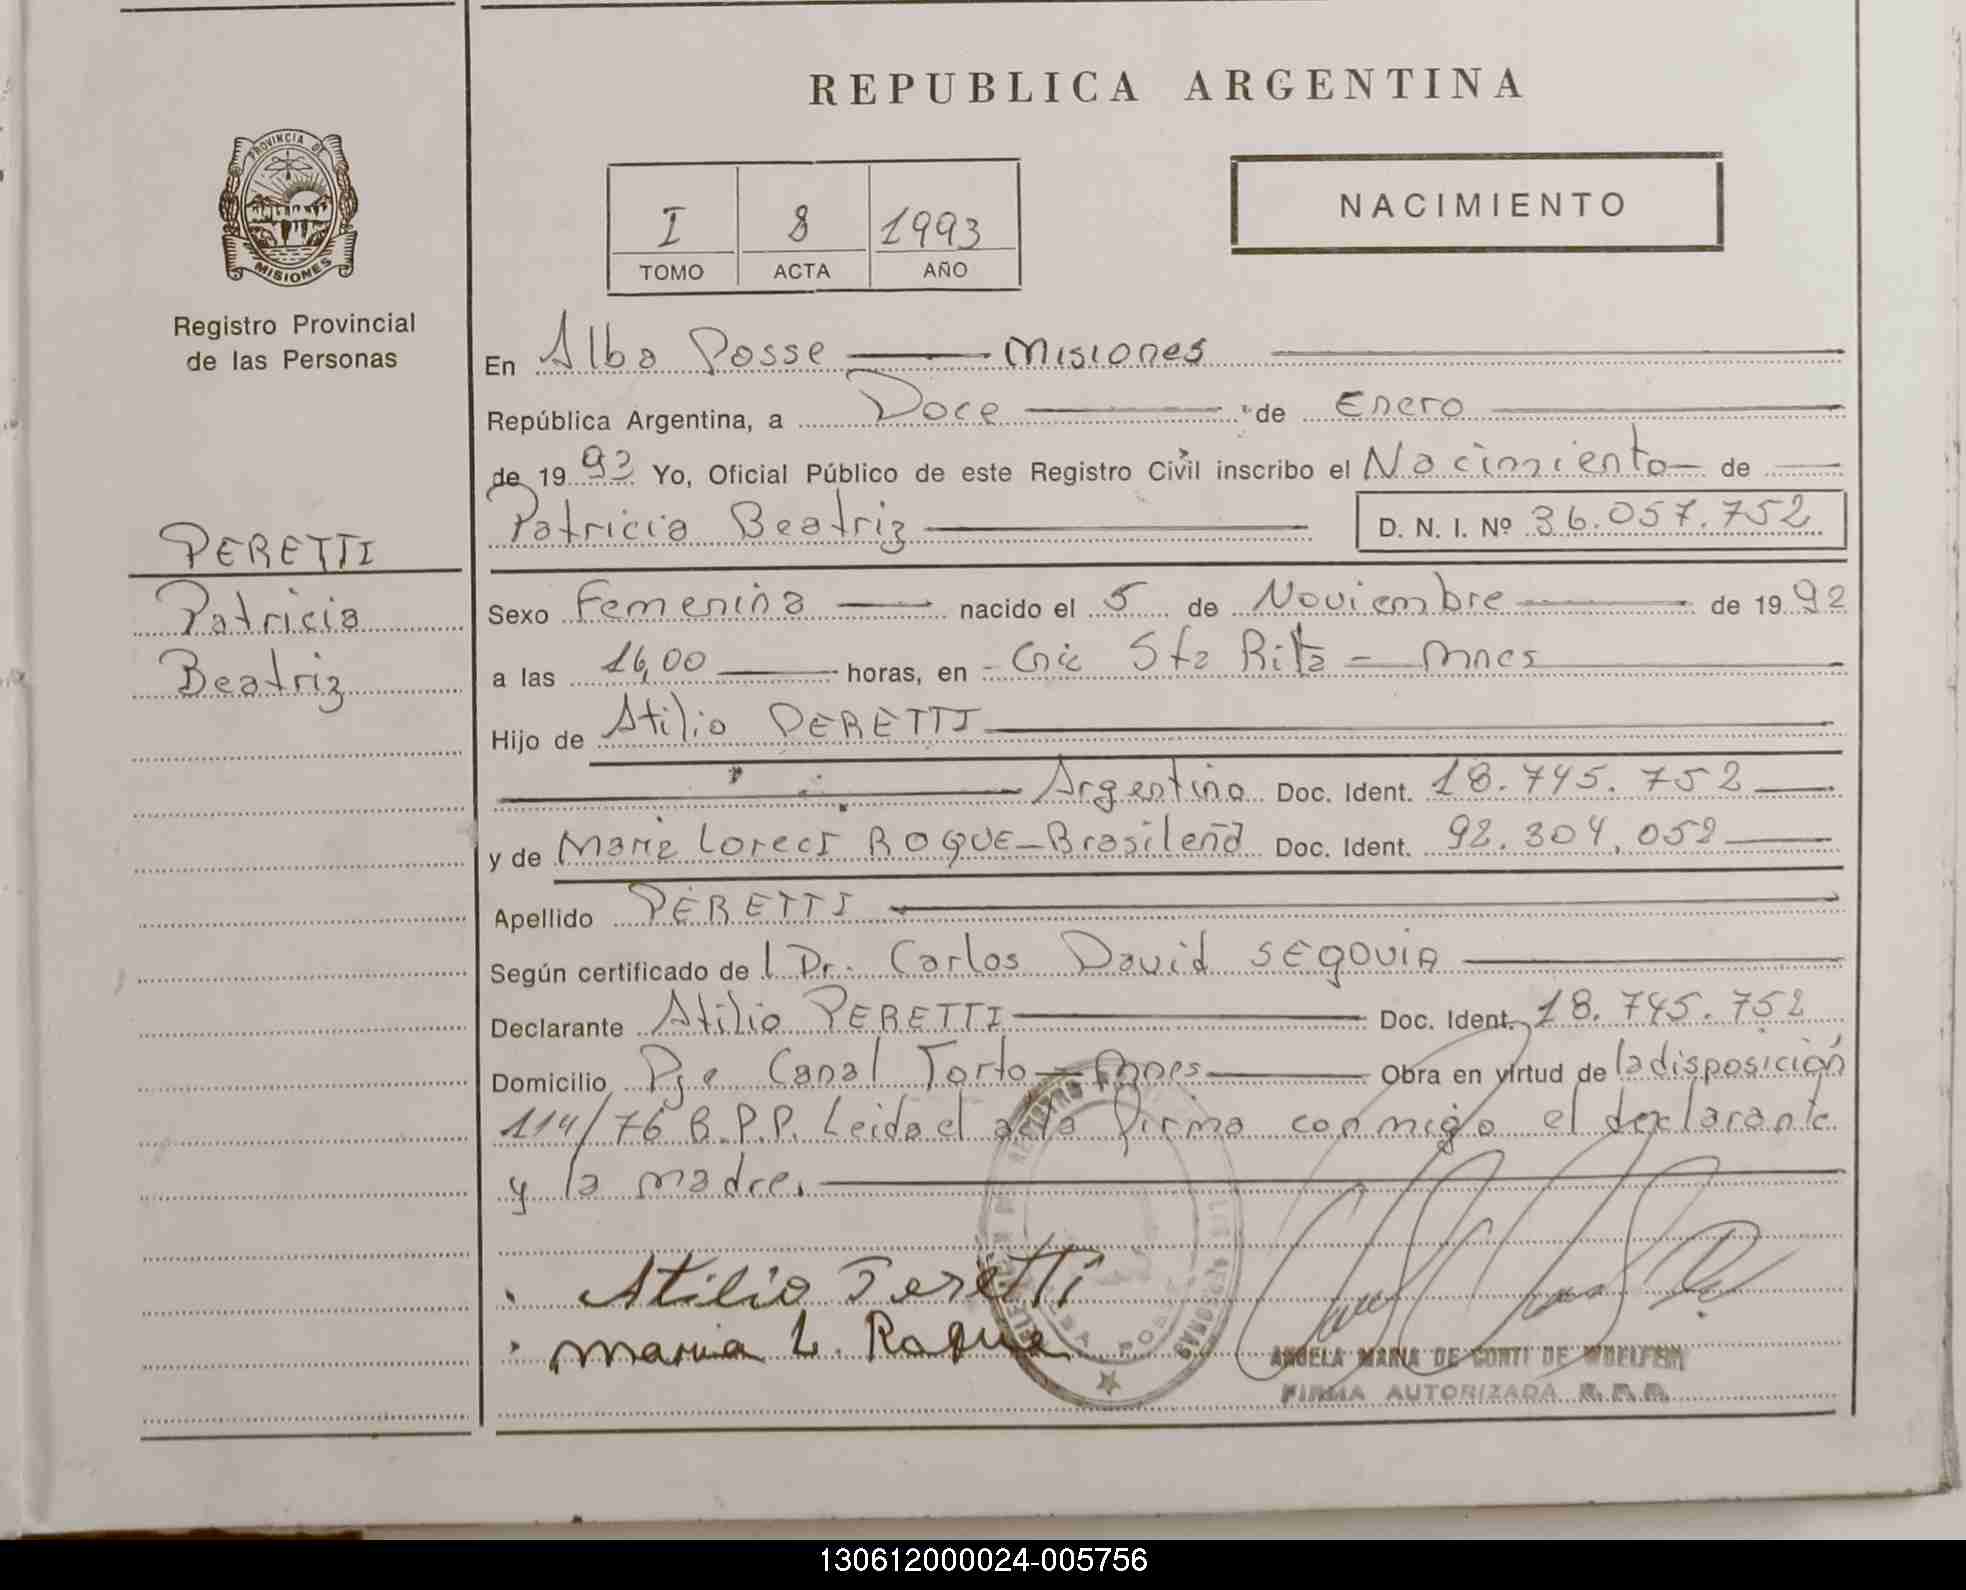 REPUBLICA ARGENTINA
PROVINCIA DE
MISIONES
Registro Provincial
de las Personas
I 8 1993
TOMO ACTA AÑO
NACIMIENTO
En Alba Posse Misiones
República Argentina, a Doce de Enero
de 1993 Yo, Oficial Público de este Registro Civil inscribo el Nacimiento de
Patricia Beatriz D. N. I. Nº 36.057.752
PERETTI
Patricia
Beatriz
Sexo Femenina nacido el 5 de Noviembre de 1992
a las 16,00 horas, en Cnia Sta Rita - Mnes
Hijo de Atilio PERETTI
Argentino Doc. Ident. 18.745.752
y de Maria Loreci ROQUE - Brasileña Doc. Ident. 92.304.052
Apellido PERETTI
Según certificado de l Dr. Carlos David SEGOVIA
Declarante Atilio PERETTI Doc. Ident. 18.745.752
Domicilio Pje Canal Torto - Mnes Obra en virtud de la disposición
114/76 R.P.P. Leida el acta firma conmigo el declarante
y la madre.
Atilio Peretti
Maria L. Roque
ANGELA MARIA DE CONTI DE WOELFERT
FIRMA AUTORIZADA R.P.P.
130612000024-005756